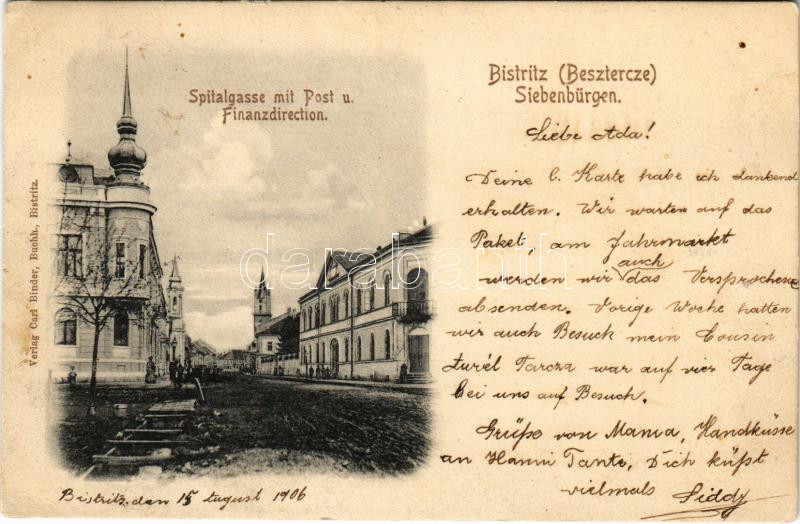 Spitalgasse mit Post u.
Finanzdirection.
Bistritz (Besztercze)
Siebenbürgen.
Verlag Carl Binder, Buchh., Bistritz.
darabanth
Liebe Ada!
Deine l. Karte habe ich dankend
erhalten. Wir warten auf das
Paket, am Jahrmarkt
werden wir auch das Versprochene
absenden. Vorige Woche hatten
wir auch Besuch mein Cousin
Tarcza war auf vier Tage
bei uns auf Besuch.
Grüße von Mama, Handküsse
an Hanni Tante, Dich küßt
vielmals Siddy
Bistritz, den 15 August 1906